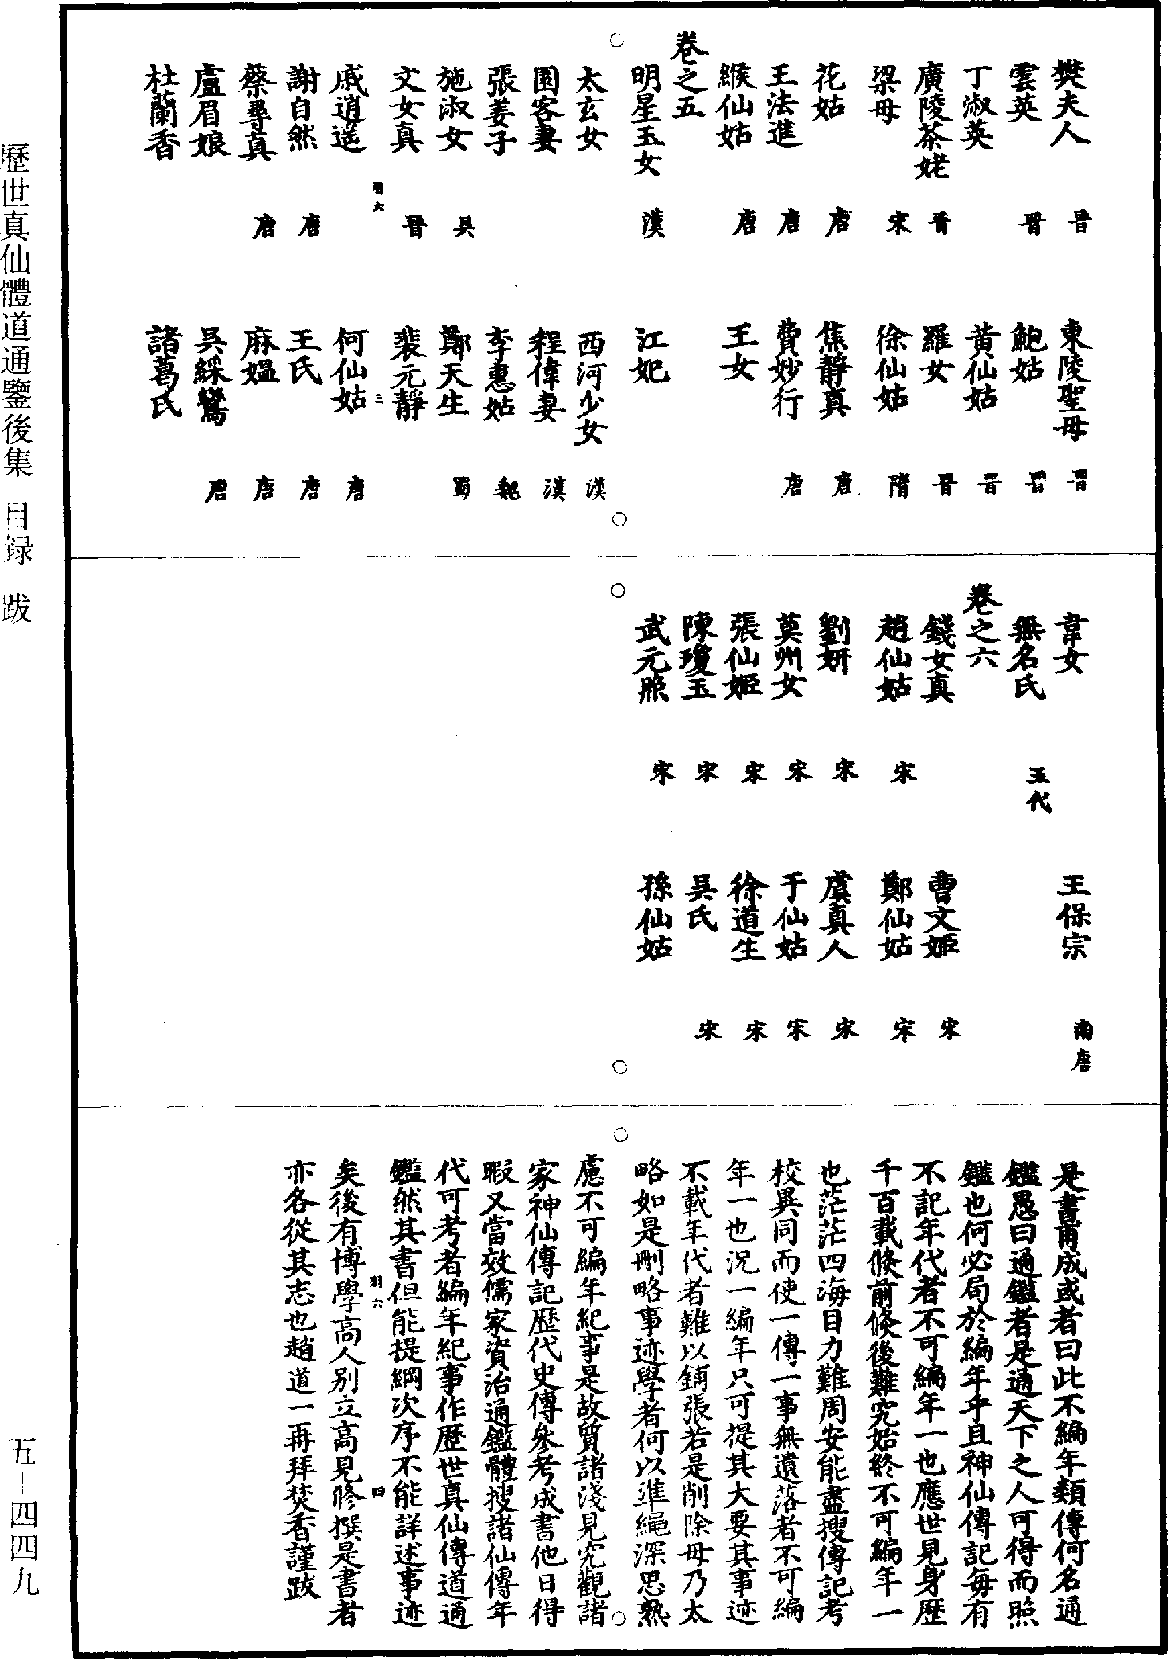 樊夫人 晉 東陵聖母 晉
雲英 晉 鮑姑 晉
丁淑英 黃仙姑 晉
廣陵茶姥 晉 羅女 晉
梁母 宋 徐仙姑 隋
花姑 唐 焦靜真 唐
王法進 唐 費妙行 唐
緱仙姑 唐 王女
卷之五
明星玉女 漢 江妃
太玄女 西河少女 漢
園客妻 程偉妻 漢
張姜子 李惠姑 魏
施淑女 吳 鄭天生 蜀
文女真 晉 裴元靜
羽六 三
戚逍遙 何仙姑 唐
謝自然 唐 王氏 唐
蔡尋真 唐 麻媼 唐
盧眉娘 吳綵鸞 唐
杜蘭香 諸葛氏
韋女 王保宗 南唐
無名氏 五代
卷之六
錢女真 曹文姬 宋
趙仙姑 宋 鄭仙姑 宋
劉妍 宋 虞真人 宋
莫州女 宋 于仙姑 宋
張仙姬 宋 徐道生 宋
陳瓊玉 宋 吳氏 宋
武元照 宋 孫仙姑
是書甫成或者曰此不編年類傳何名通
鑑愚曰通鑑者是通天下之人可得而照
鑑也何必局於編年乎且神仙傳記每有
不記年代者不可編年一也應世見身歷
千百載倏前倏後難究始終不可編年一
也茫茫四海目力難周安能盡搜傳記考
校異同而使一傳一事無遺落者不可編
年一也況一編年只可提其大要其事迹
不載年代者難以鋪張若是削除毋乃太
略如是刪略事迹學者何以準繩深思熟
慮不可編年紀事是故質諸淺見究觀諸
家神仙傳記歷代史傳參考成書他日得
暇又當效儒家資治通鑑體搜諸仙傳年
代可考者編年紀事作歷世真仙傳道通
鑑然其書但能提綱次序不能詳述事迹
羽六 四
矣後有博學高人別立高見修撰是書者
亦各從其志也趙道一再拜焚香謹跋
歷世真仙體道通鑒後集 目録 跋
五-四四九